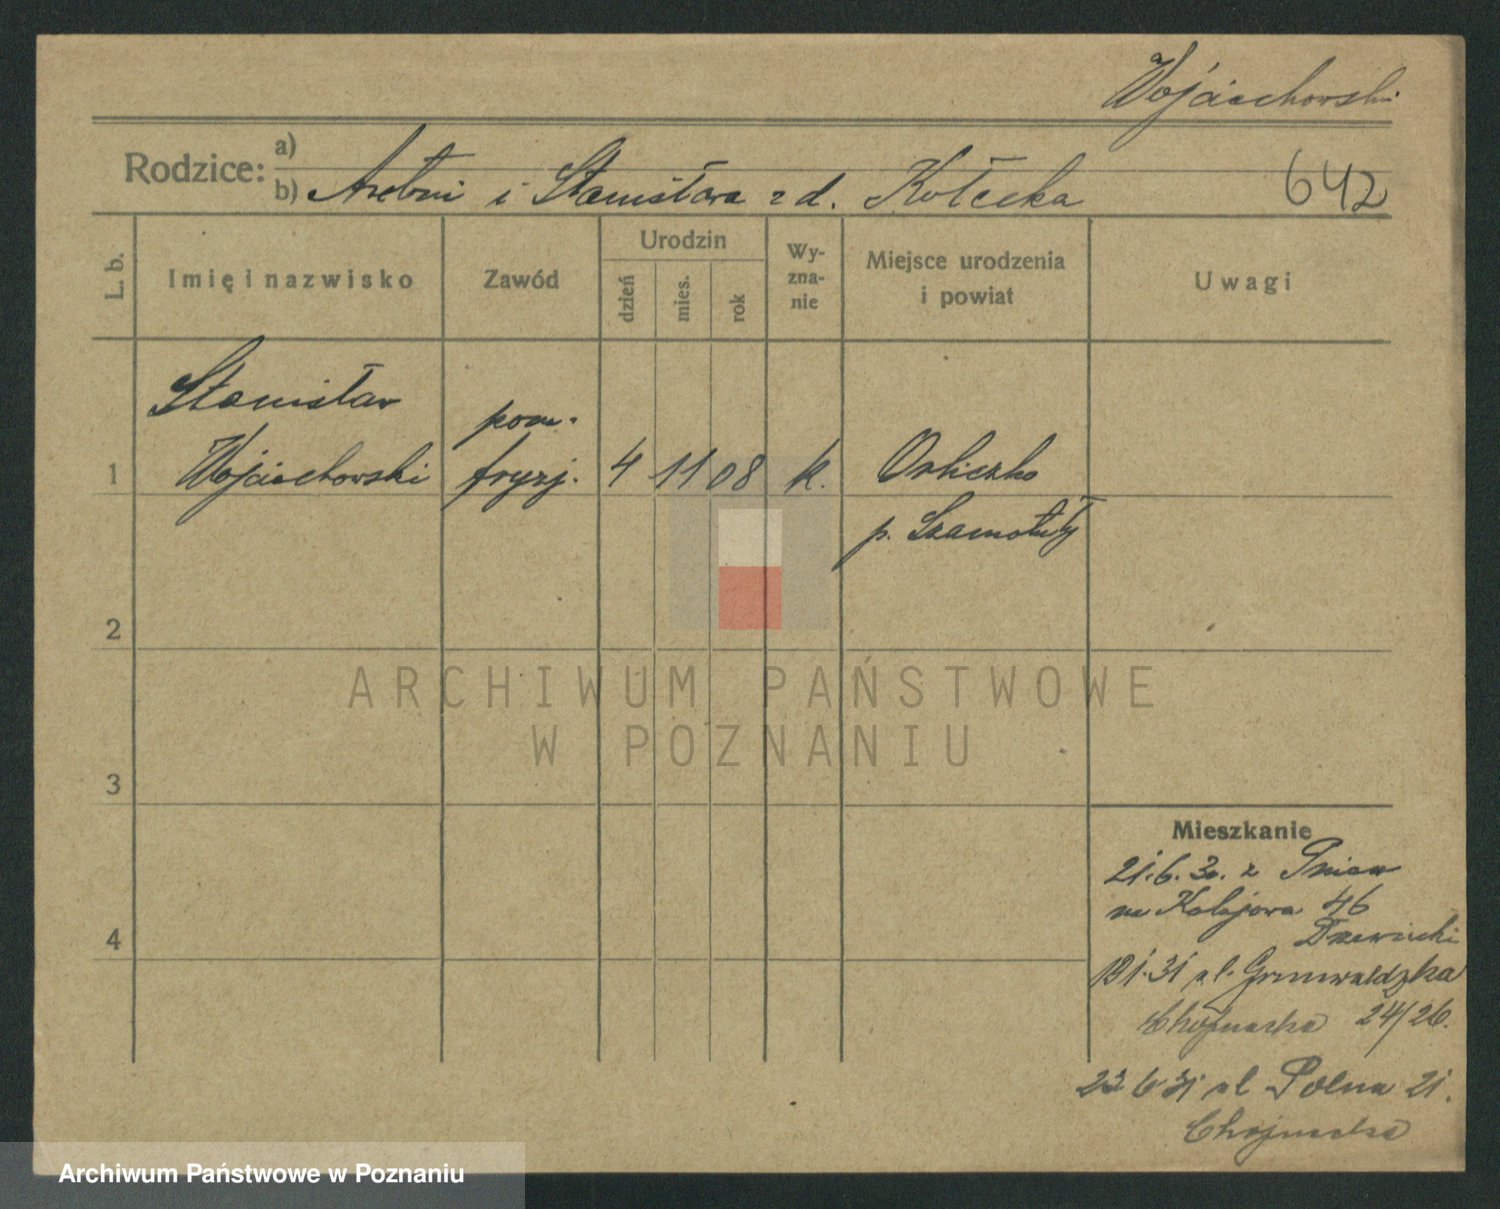 Wojciechowski
Rodzice: a)
b) i Stanisława z d. Kołecka
642
L. b.
Imię i nazwisko
Zawód
Urodzin
dzień
mies.
rok
Wy-
zna-
nie
Miejsce urodzenia
i powiat
Uwagi
Stanisław
pom.
1 Wojciechowski fryzj. 4 11 08 k.
p. Szamotuły
2
ARCHIWUM PAŃSTWOWE
W POZNANIU
3
Mieszkanie
21.6.30. z Pniew
na Kolejowa 46
4
ul. Grunwaldzka
Chojnacka 24/26.
22 6 31 ul Polna 21.
Chojnacka
Archiwum Państwowe w Poznaniu